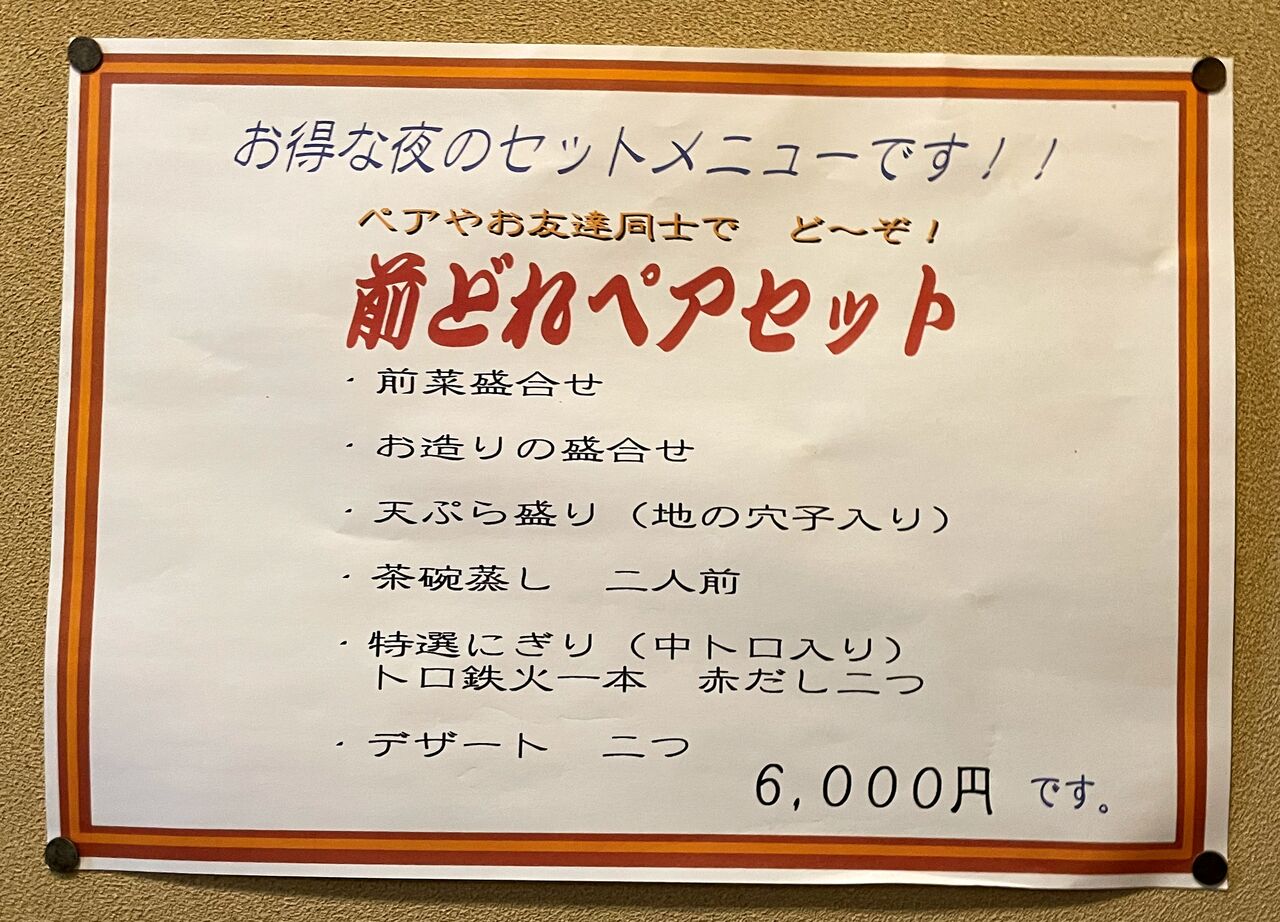 お得な夜のセットメニューです！！
ペアやお友達同士で　ど～ぞ！
前どれペアセット
・前菜盛合せ
・お造りの盛合せ
・天ぷら盛り（地の穴子入り）
・茶碗蒸し　二人前
・特選にぎり（中トロ入り）
トロ鉄火一本　赤だし二つ
・デザート　二つ
６，０００円 です。